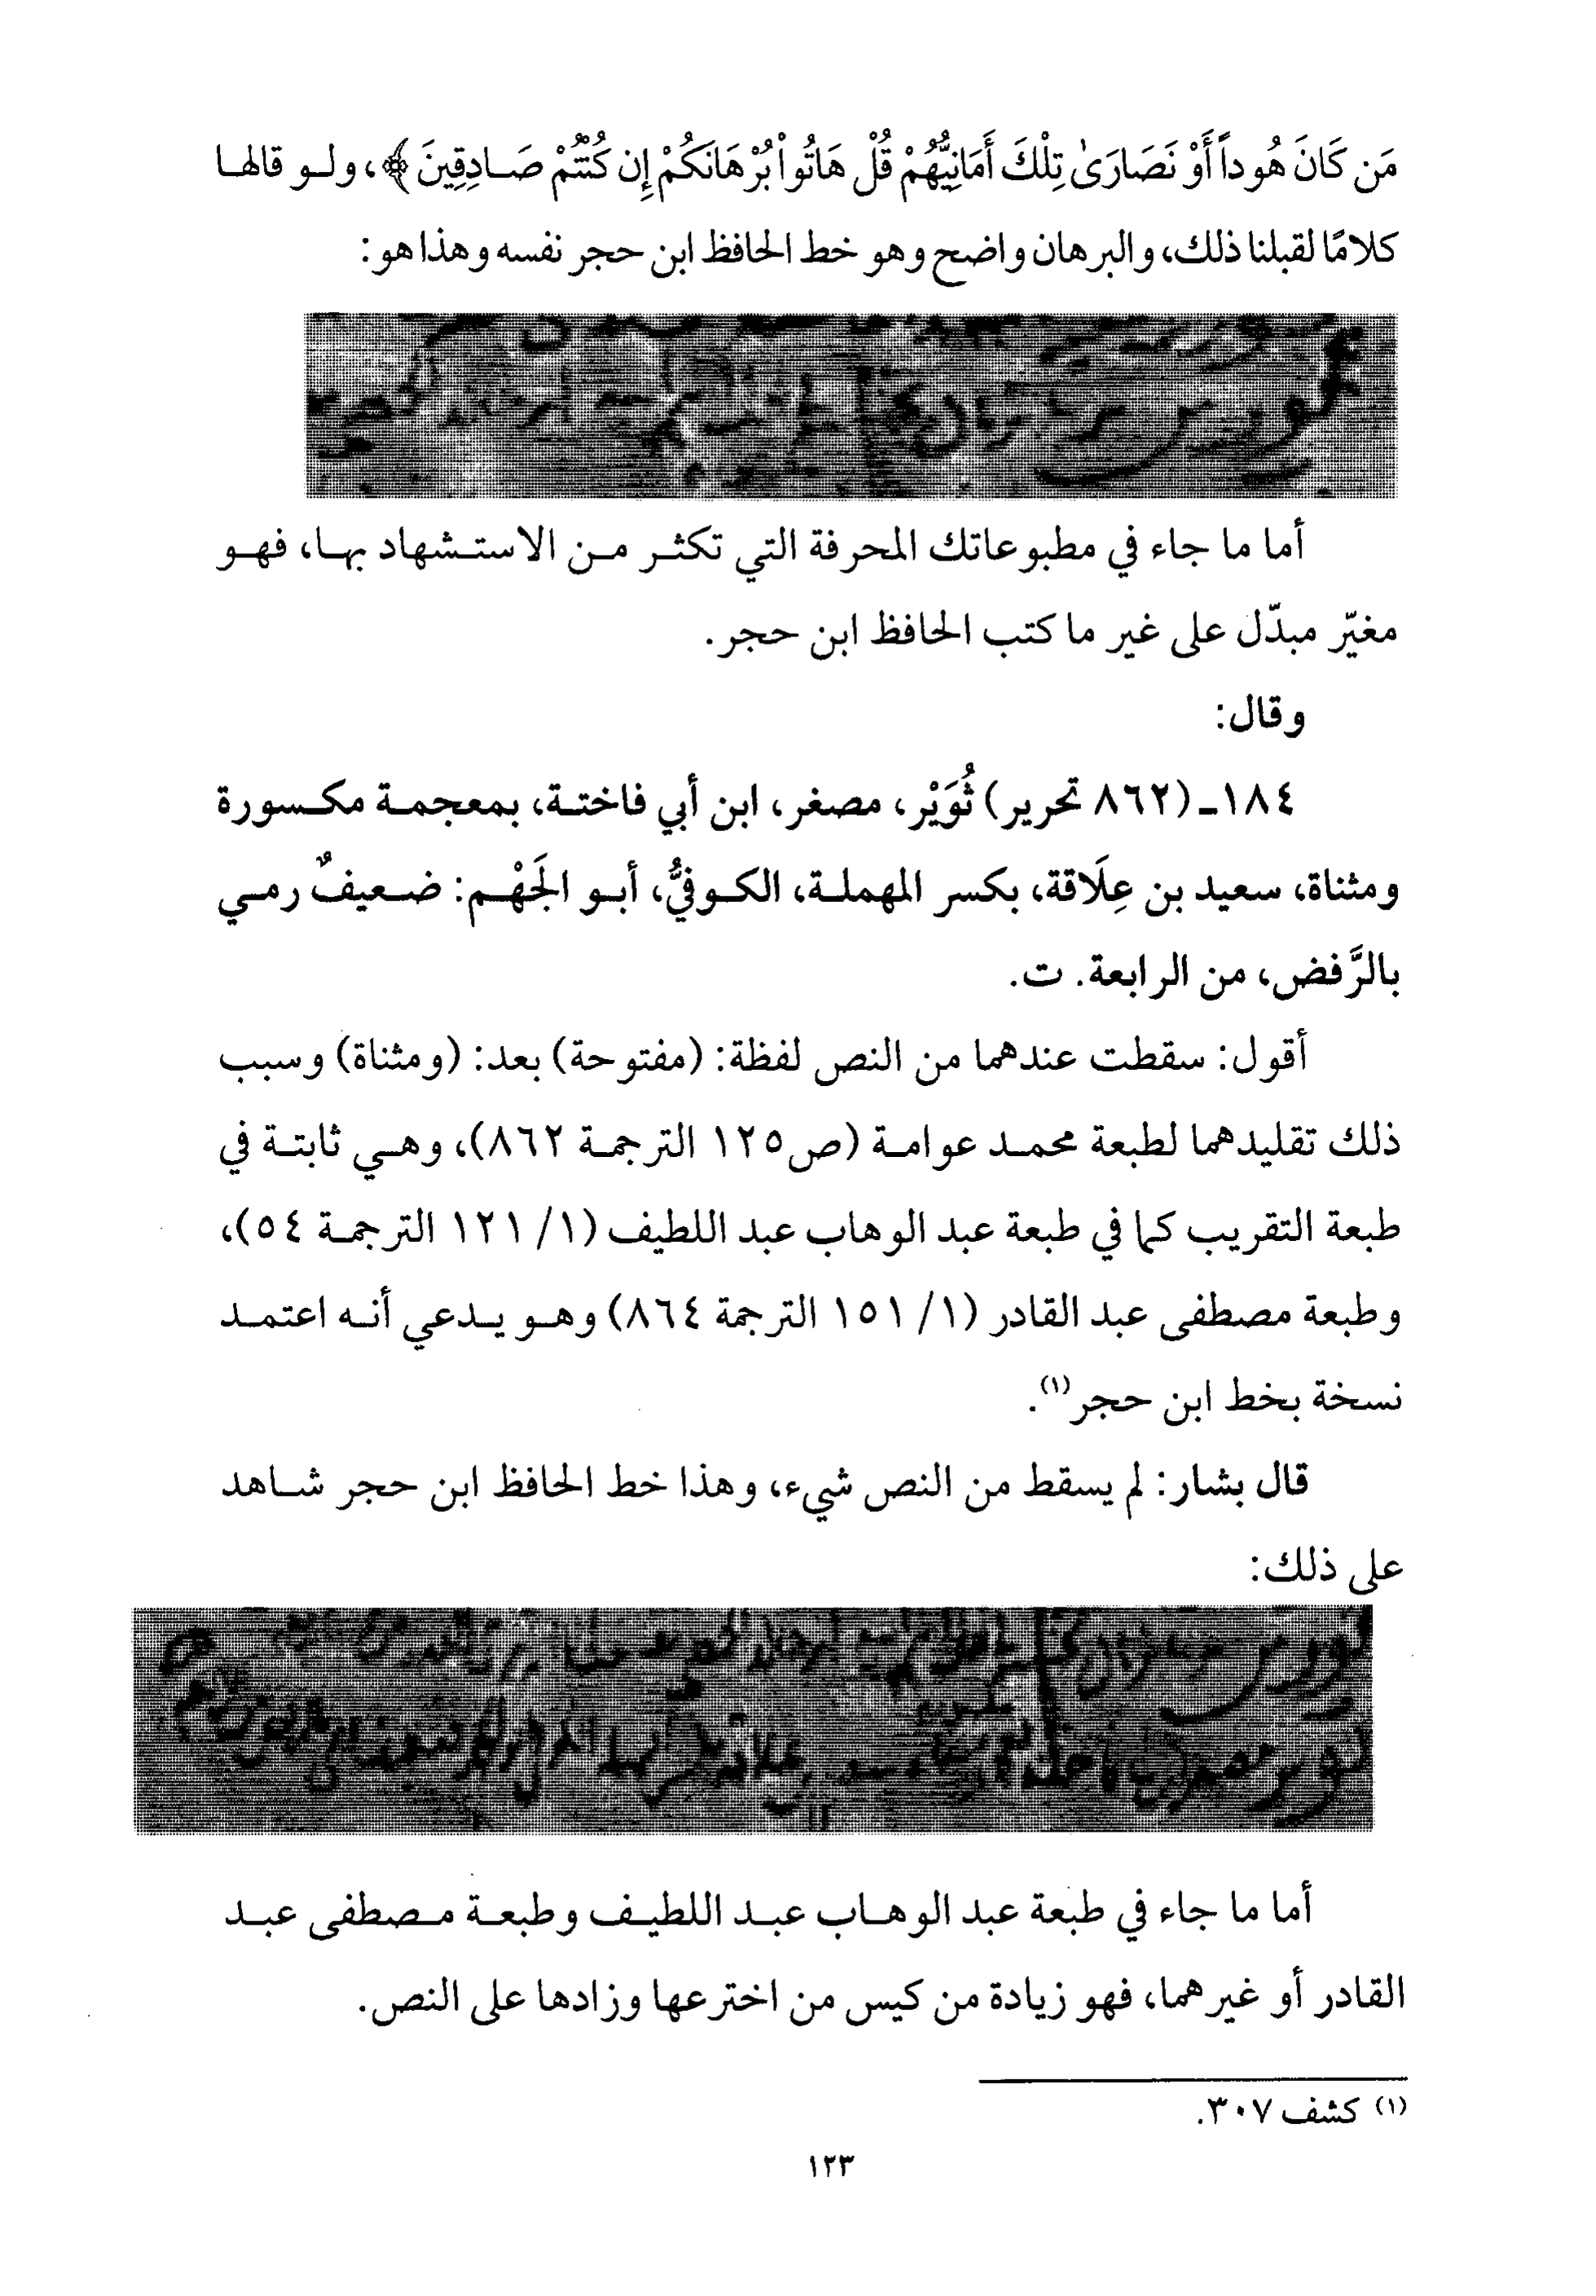 مَن كَانَ هُوداً أَوْ نَصَارَىٰ تِلْكَ أَمَانِيُّهُمْ قُلْ هَاتُواْ بُرْهَانَكُمْ إِن كُنتُمْ صَادِقِينَ ﴾، ولو قالها
كلامًا لقبلنا ذلك، والبرهان واضح وهو خط الحافظ ابن حجر نفسه وهذا هو:
أما ما جاء في مطبوعاتك المحرفة التي تكثر من الاستشهاد بها، فهو
مغيّر مبدّل على غير ما كتب الحافظ ابن حجر.
وقال:
١٨٤ـ (٨٦٢ تحرير) ثُوَيْر، مصغر، ابن أبي فاختة، بمعجمة مكسورة
ومثناة، سعيد بن عِلَاقة، بكسر المهملة، الكوفيُّ، أبو الجَهْم: ضعيفٌ رمي
بالرَّفض، من الرابعة. ت.
أقول: سقطت عندهما من النص لفظة: (مفتوحة) بعد: (ومثناة) وسبب
ذلك تقليدهما لطبعة محمد عوامة (ص١٢٥ الترجمة ٨٦٢)، وهي ثابتة في
طبعة التقريب كما في طبعة عبد الوهاب عبد اللطيف (١/ ١٢١ الترجمة ٥٤)،
وطبعة مصطفى عبد القادر (١/ ١٥١ الترجمة ٨٦٤) وهو يدعي أنه اعتمد
نسخة بخط ابن حجر(١).
قال بشار: لم يسقط من النص شيء، وهذا خط الحافظ ابن حجر شاهد
على ذلك:
أما ما جاء في طبعة عبد الوهاب عبد اللطيف وطبعة مصطفى عبد
القادر أو غيرهما، فهو زيادة من كيس من اخترعها وزادها على النص.
(١) كشف ٣٠٧.
١٢٣